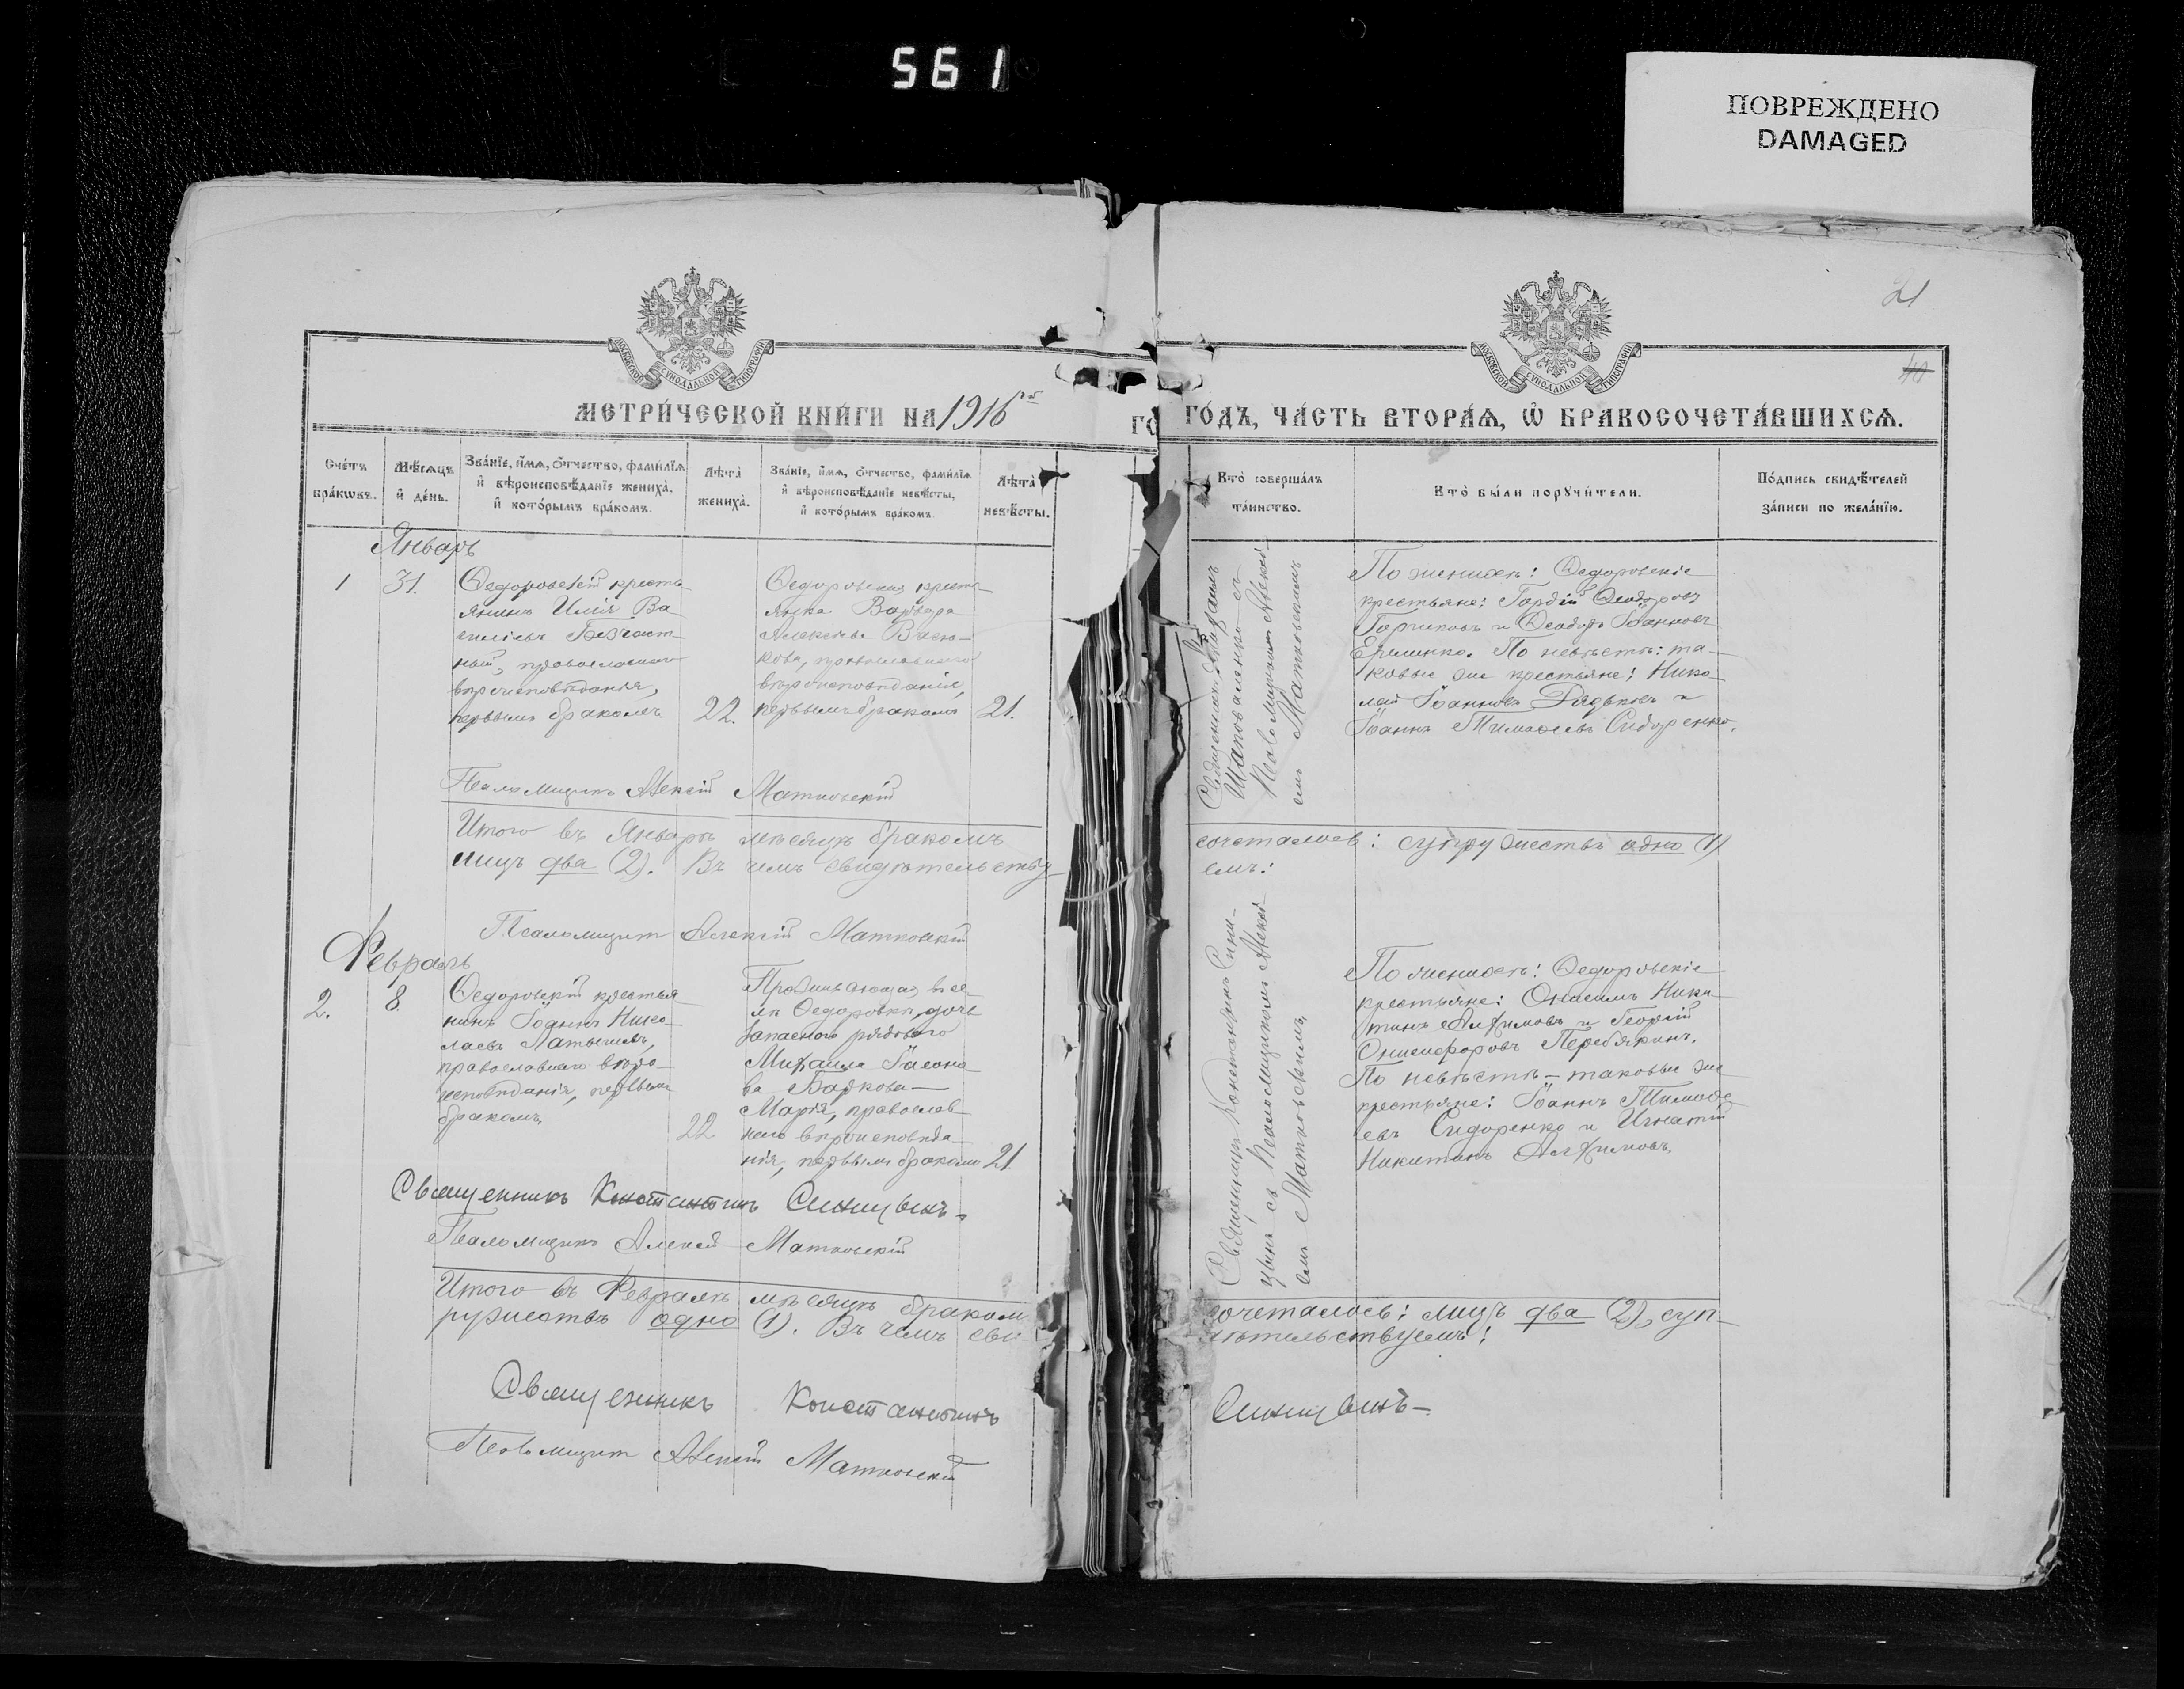 561
ПОВРЕЖДЕНО
DAMAGED
21
МОСКОВСКОЙ СУНОДАЛЬНОЙ ТИПОГРАФІИ
МОСКОВСКОЙ СУНОДАЛЬНОЙ ТИПОГРАФІИ
МЕТРИ́ЧЕСКОЙ КНИ́ГИ НА 1916
ГО
ГО́ДЪ, ЧА́СТЬ ВТОРА́Ѧ, Ѡ҆ БРАКОСОЧЕТА́ВШИХСѦ.
Сче́тъ
бра́кѡвъ.
Мѣ́сѧцъ
и҆ де́нь.
Зва́нїе, и҆́мѧ, ѻ҆́тчество, фами́лїѧ
и҆ вѣроисповѣ́данїе жениха̀,
и҆ кото́рымъ бра́комъ.
Лѣта̀
жениха̀.
Зва́нїе, и҆́мѧ, ѻ҆́тчество, фами́лїѧ
и҆ вѣроисповѣ́данїе невѣ́сты,
и҆ кото́рымъ бра́комъ.
Лѣта̀
невѣ́сты.
Кто̀ соверша́лъ
та́инство.
Кто̀ бы́ли порꙋчи́тели.
По́дпись свидѣ́телей
за́писи по жела́нїю.
Январь
1
31.
Ѳедоровскій кресть-
янинъ Илія Ва-
силіевъ Безчаст-
ный, православнаго
вѣроисповѣданія,
первымъ бракомъ.
22.
Ѳедоровская кресть-
янка Варвара
Алексіева
кова, православнаго
вѣроисповѣданія,
первымъ бракомъ
21.
Священникъ
Шаповаленко съ
Псаломщикомъ Алексі-
емъ Матковскимъ
По женихѣ: Ѳедоровскіе
крестьяне: Гордій Ѳеодоровъ
и Ѳеодоръ Іоанновъ
Еременко. По невѣстѣ: та-
ковые же крестьяне: Нико-
лай Іоанновъ Дядьковъ и
Іоаннъ Тимоѳеевъ Сидоренко.
Псаломщикъ Алексій Матковскій
Итого въ Январѣ мѣсяцѣ бракомъ
сочеталось: супружествъ одно (1)
лицъ два (2). Въ чемъ свидѣтельству-
емъ:
Псаломщикъ Алексій Матковскій
Февраль
2.
8.
Ѳедоровскій крестья-
нинъ Іоаннъ Нико-
лаевъ Латышевъ,
православнаго вѣро-
исповѣданія, первымъ
бракомъ.
22
Проживающая въ се-
лѣ Ѳедоровкѣ, дочь
запасного рядового
Михаила Іасоно-
ва Баркова—
Марія, православ-
наго вѣроисповѣда-
нія, первымъ бракомъ
21.
Священникъ Константинъ Сини-
цынъ съ Псаломщикомъ Алексі-
емъ Матковскимъ
По женихѣ: Ѳедоровскіе
крестьяне: Онисимъ Ники-
тинъ Алфимовъ и Георгій
Онисифоровъ Перебякинъ.
По невѣстѣ — таковые же
крестьяне: Іоаннъ Тимоѳе-
евъ Сидоренко и Игнатій
Никитинъ Алфимовъ.
Священникъ Константинъ Синицынъ.
Псаломщикъ Алексій Матковскій
Итого въ Февралѣ мѣсяцѣ бракомъ
сочеталось: лицъ два (2), суп-
ружествъ одно (1). Въ чемъ сви-
дѣтельствуемъ:
Священникъ Константинъ Синицынъ.
Псаломщикъ Алексій Матковскій